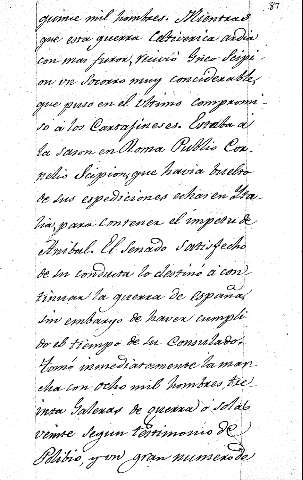 87
quince mil hombres. Mientras
que esta guerra Celtiverica ardia
con mas furor, recivió Gneo Scipi
on un Socorro muy considerable,
que puso en el ultimo compromi
so á los Cartajineses. Estaba á
la sason en Roma Publio Cor
nelio Scipion, que havia buelto
de sus espediciones echas en Yta
lia, para contener el impetu de
Anibal. El Senado satisfecho
de su conducta lo destinó a con
tinuar la guerra de España,
sin embargo de haver cumpli
do el tiempo de su Consulado:
tomó inmediatamente la mar
cha con ocho mil hombres, tre
inta Galeras de guerra ó solas
veinte segun testimonio de
Polibio, y un gran numero de